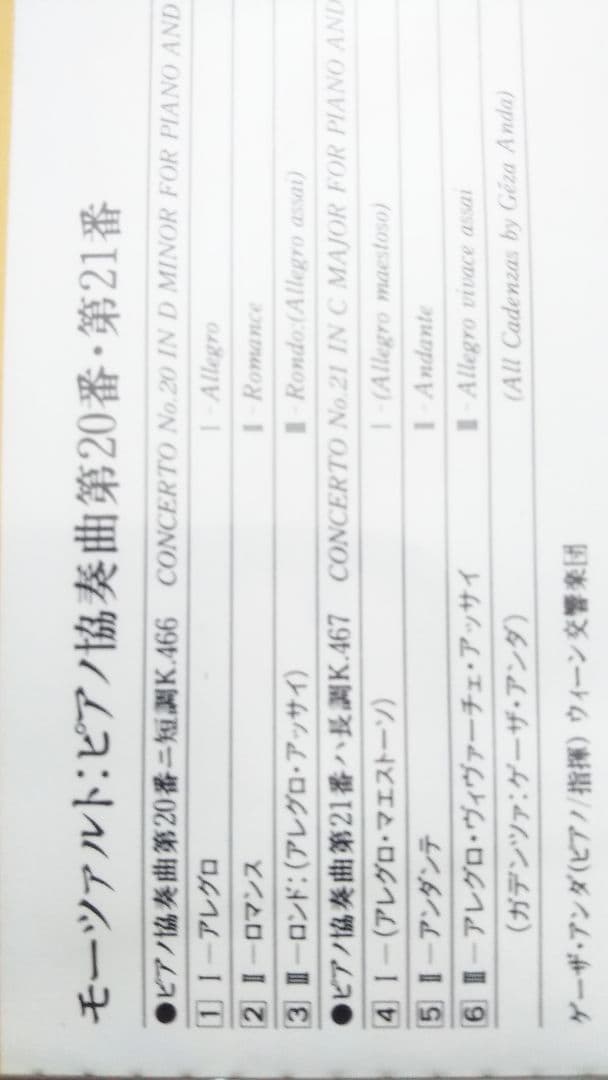 モーツァルト:ピアノ協奏曲第20番・第21番
●ピアノ協奏曲第20番ニ短調K.466 CONCERTO No.20 IN D MINOR FOR PIANO AND
1 Ⅰ－アレグロ Ⅰ - Allegro
2 Ⅱ－ロマンス Ⅱ - Romance
3 Ⅲ－ロンド:(アレグロ・アッサイ) Ⅲ - Rondo:(Allegro assai)
●ピアノ協奏曲第21番ハ長調K.467 CONCERTO No.21 IN C MAJOR FOR PIANO AND
4 Ⅰ－(アレグロ・マエストーソ) Ⅰ - (Allegro maestoso)
5 Ⅱ－アンダンテ Ⅱ - Andante
6 Ⅲ－アレグロ・ヴィヴァーチェ・アッサイ Ⅲ - Allegro vivace assai
(ガデンツァ:ゲーザ・アンダ) (All Cadenzas by Géza Anda)
ゲーザ・アンダ(ピアノ/指揮) ウィーン交響楽団